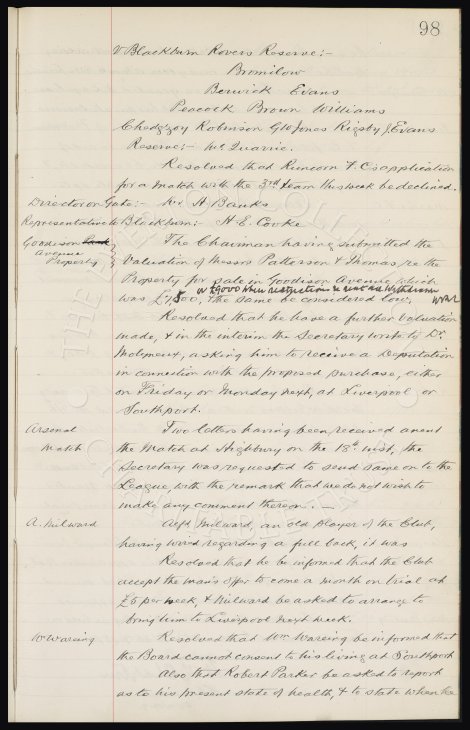 98
v Blackburn Rovers Reserve;-
Bromilow
Berwick Evans
Peacock Brown Williams
Chedgzoy Robinson GW Jones Rigsby J. Evans
Reserve;- McQuarrie.
Resolved that Runcorn F.C's application
for a match with the 3rd team this week be declined.
Director on Gate:- Mr A. Banks
Representative to Blackburn;- H.E. Cooke
Goodison Park The Chairman having submitted the
Avenue Valuation of Messrs Patterson & Thomas, re the
Property Property for sale in Goodison Avenue, which
or £9000 when restriction is
was £7,500, & the same be considered low,
Resolved that we have a further Valuation
made, & in the interim the Secretary write to Dr.
Molyneux, asking him to receive a Deputation
in connection with the proposed purchase, either
on Friday or Monday next, at Liverpool or
Southport.
Arsenal Two letters having been received anent
Match the Match at Highbury on the 18th inst, the
Secretary was requested to send same on to the
League, with the remark that we do not wish to
make any comment thereon.
A. Milward Alf. Milward, an old player of the Club,
having wired regarding a full back, it was
Resolved that he be informed that the Club
accept the man's offer to come a month on trial at
£5 per week, & Milward be asked to arrange to
bring him to Liverpool next week.
W Wareing Resolved that Wm Wareing be informed that
the Board cannot consent to his living at Southport
Also that Robert Parker be asked to report
as to his present state of health, & to state when he